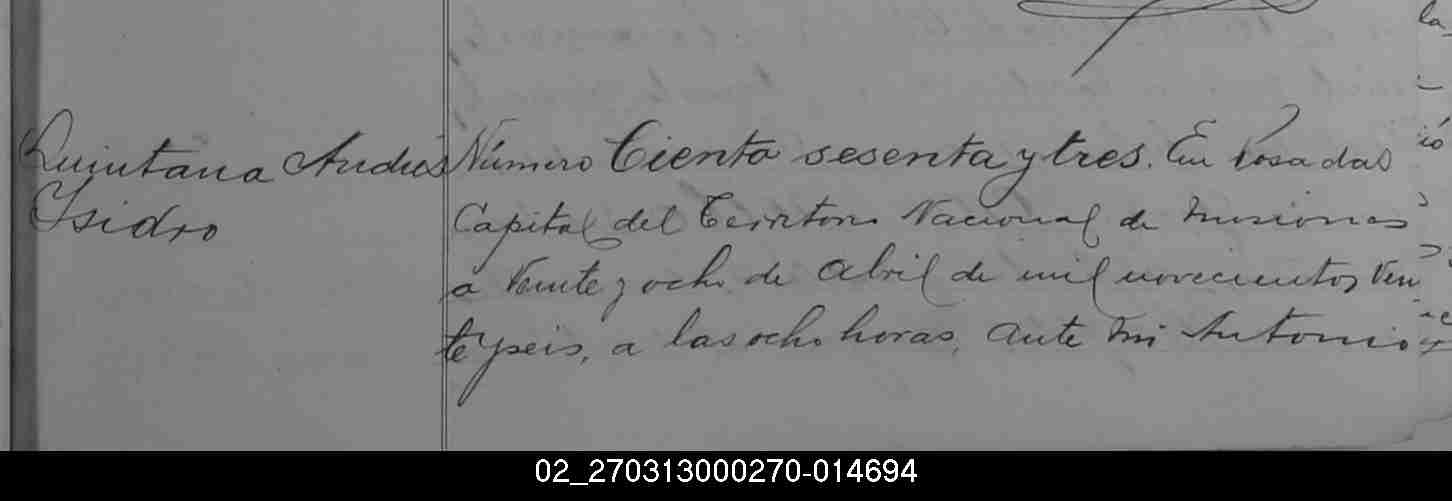 Quintana Andrés
Isidro
Número Ciento sesenta y tres. En Posadas
Capital del Territorio Nacional de Misiones
a Veinte y ocho de Abril de mil novecientos Vein
te y seis, a las ocho horas, ante mi Antonio
la
ió
02_270313000270-014694